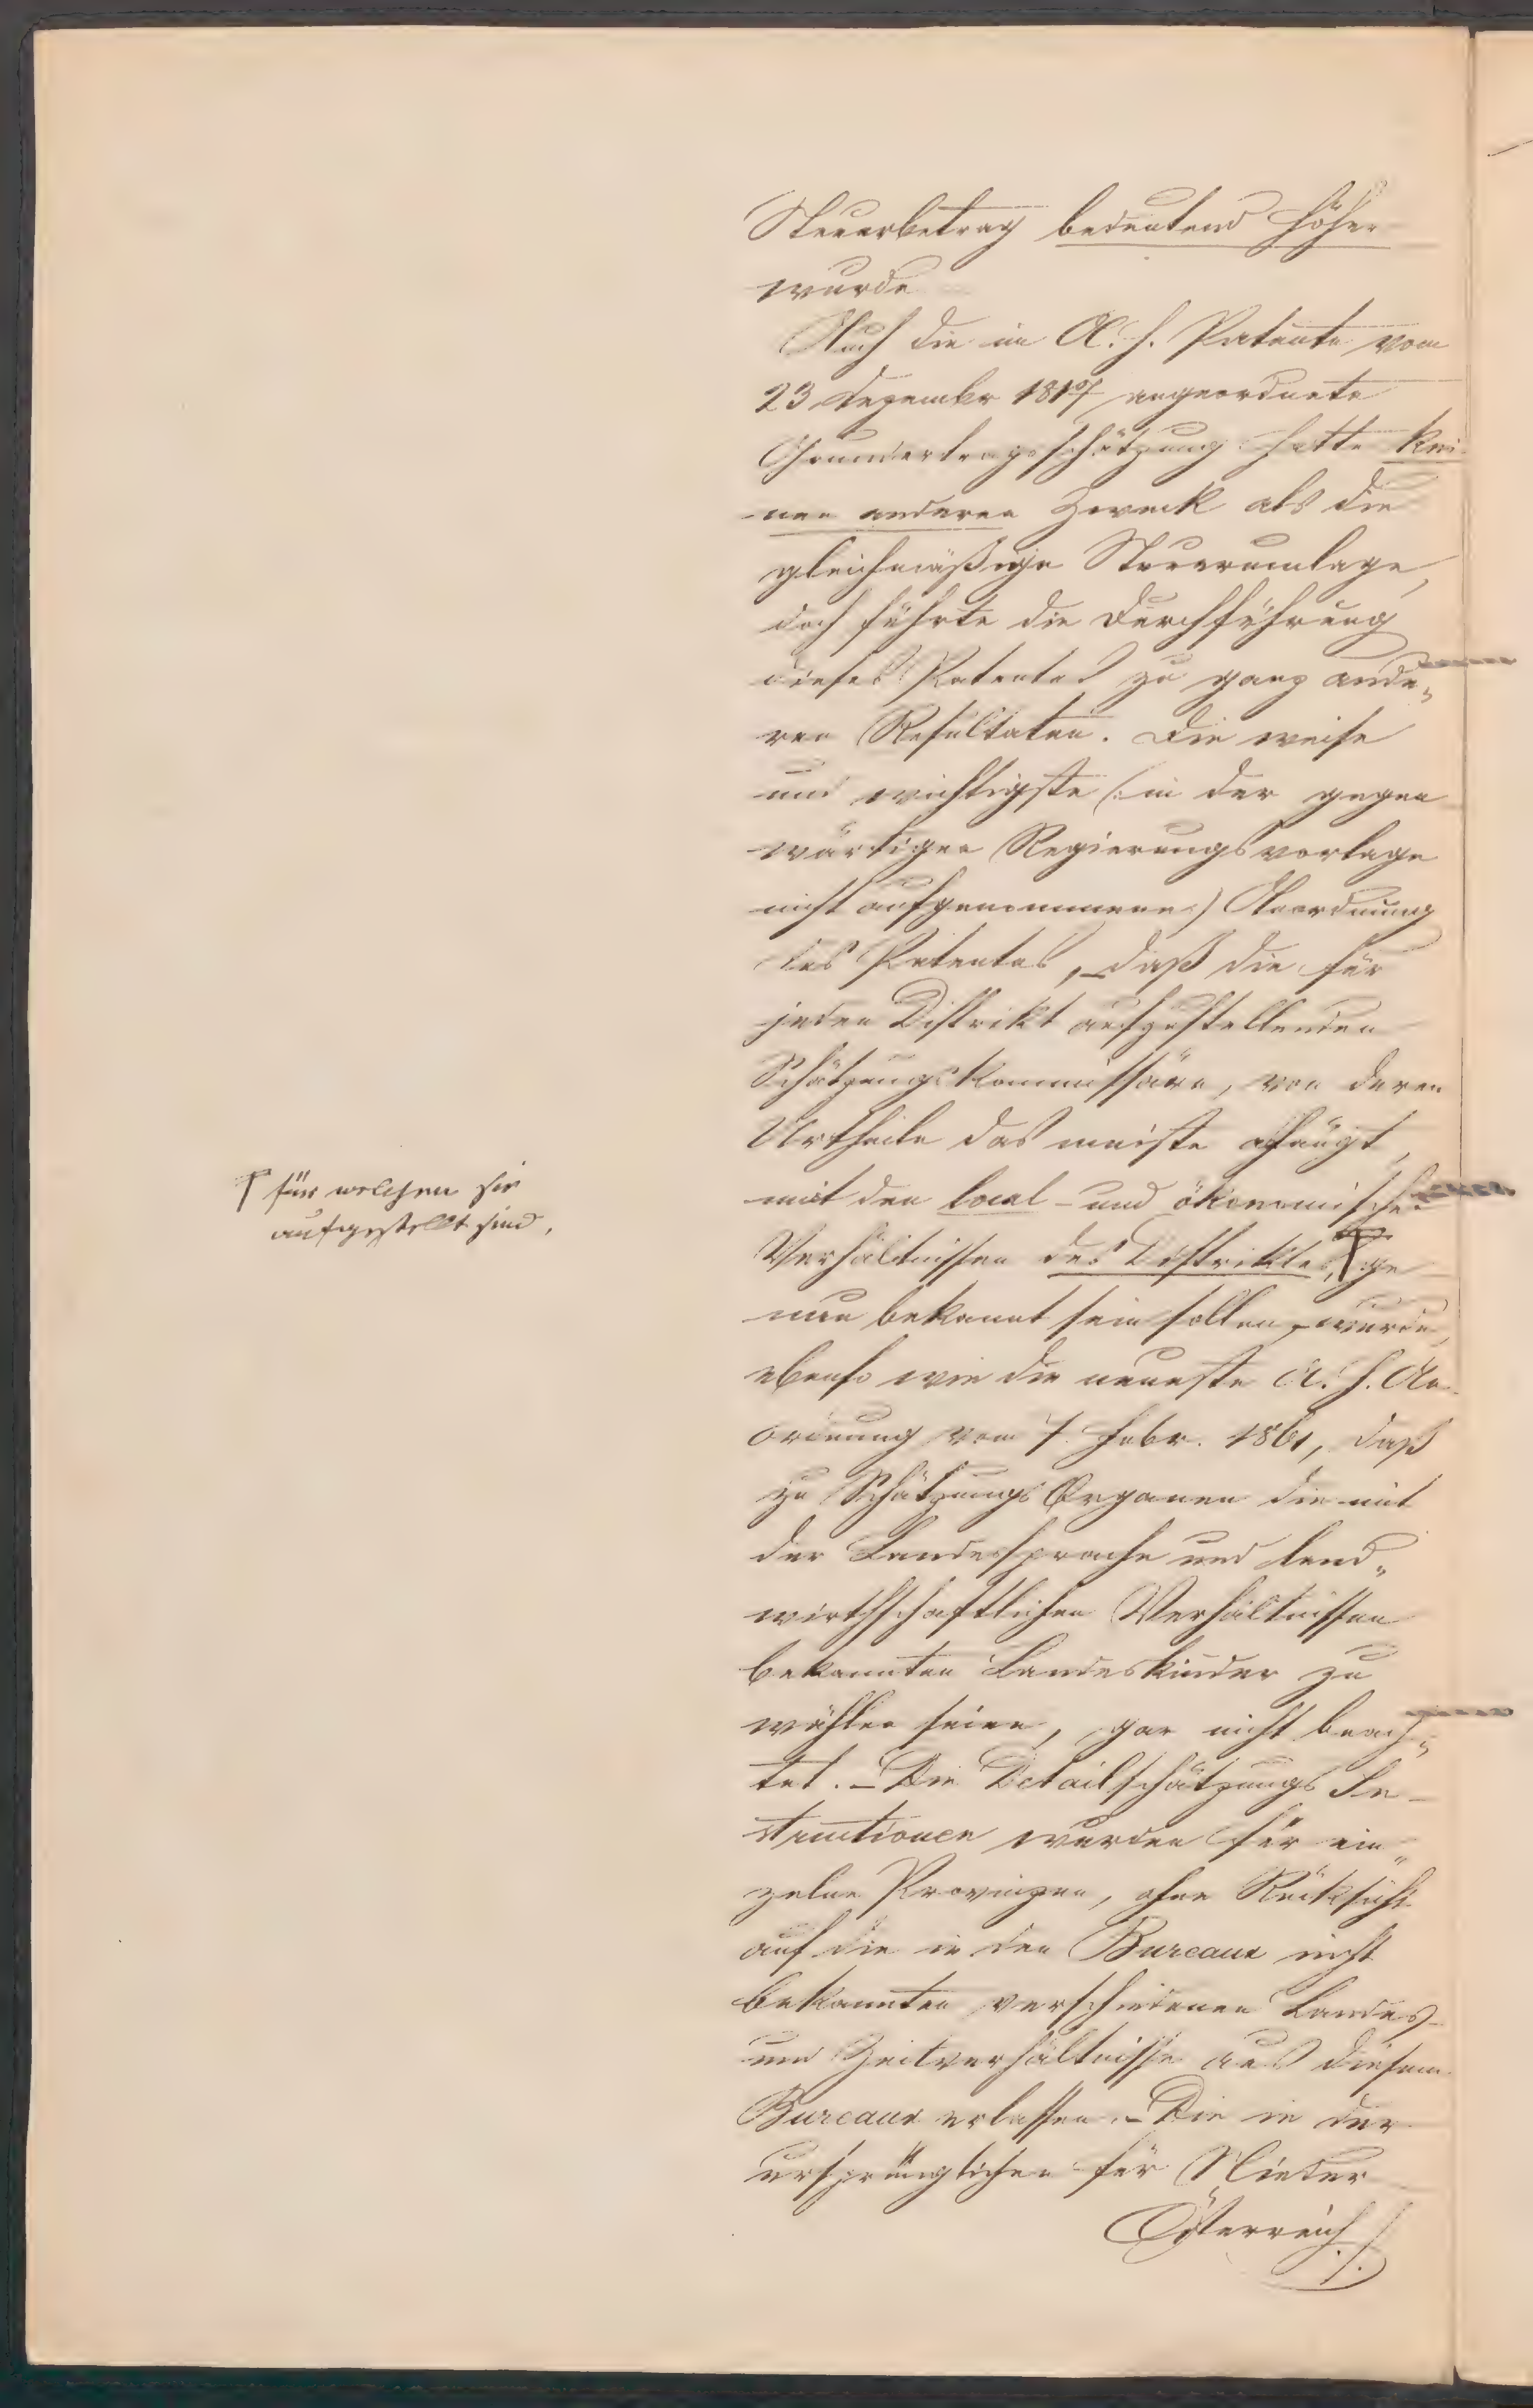 Steuerbetrag bedeutend höher
wurde
Auch die im A. h. Patente vom
23 Dezember 1817 angeordnete
Grundertragsschätzung hatte kei-
nen anderen Zweck als die
gleichmäßige Steuerumlage,
doch führte die Durchführung
dieses Patentes zu ganz ande„
ren Resultaten. Die weise
und wichtigste (:in der gegen
wärtigen Regierungsvorlage
nicht aufgenommene:) Anordnung
des Patentes, – daß die für
jeden Distrikt aufzustellenden
Schätzungskommissäre, von deren
Urtheile das meiste abhängt,
mit den local- und ökonomischen
Verhältnissen des Distriktes, ge
für welchen sie
aufgestellt sind,
nau bekannt sein sollen, – wurde,
ebenso wie die neueste A. h. An-
ordnung vom 7. Febr. 1861, daß
zu Schätzungs Organen die mit
der Landessprache und land„
wirthschaftlichen Verhältnissen
bekannten Landeskinder zu
wählen seien, gar nicht beach„
tet. – Die Detailschätzungs In-
structionen wurden für ein„
zelne Provinzen, ohne Rücksicht
auf die in den Bureaux nicht
bekannten verschiedenen Landes-
und Zeitverhältnisse aus diesem
Bureaux erlassen. – Die in der
ursprünglichen für Nieder
Österreich ./.